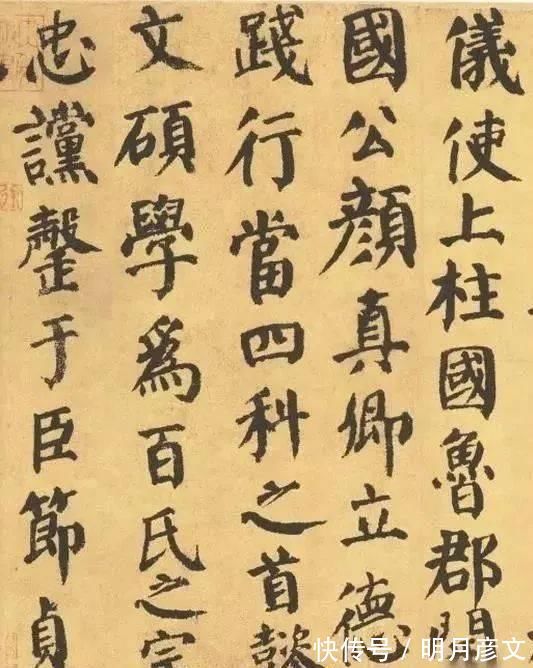 儀使上柱國魯郡開
國公顏真卿立德
踐行當四科之首懿
文碩學為百氏之宗
忠讜罄于臣節貞
快传号/明月彦文